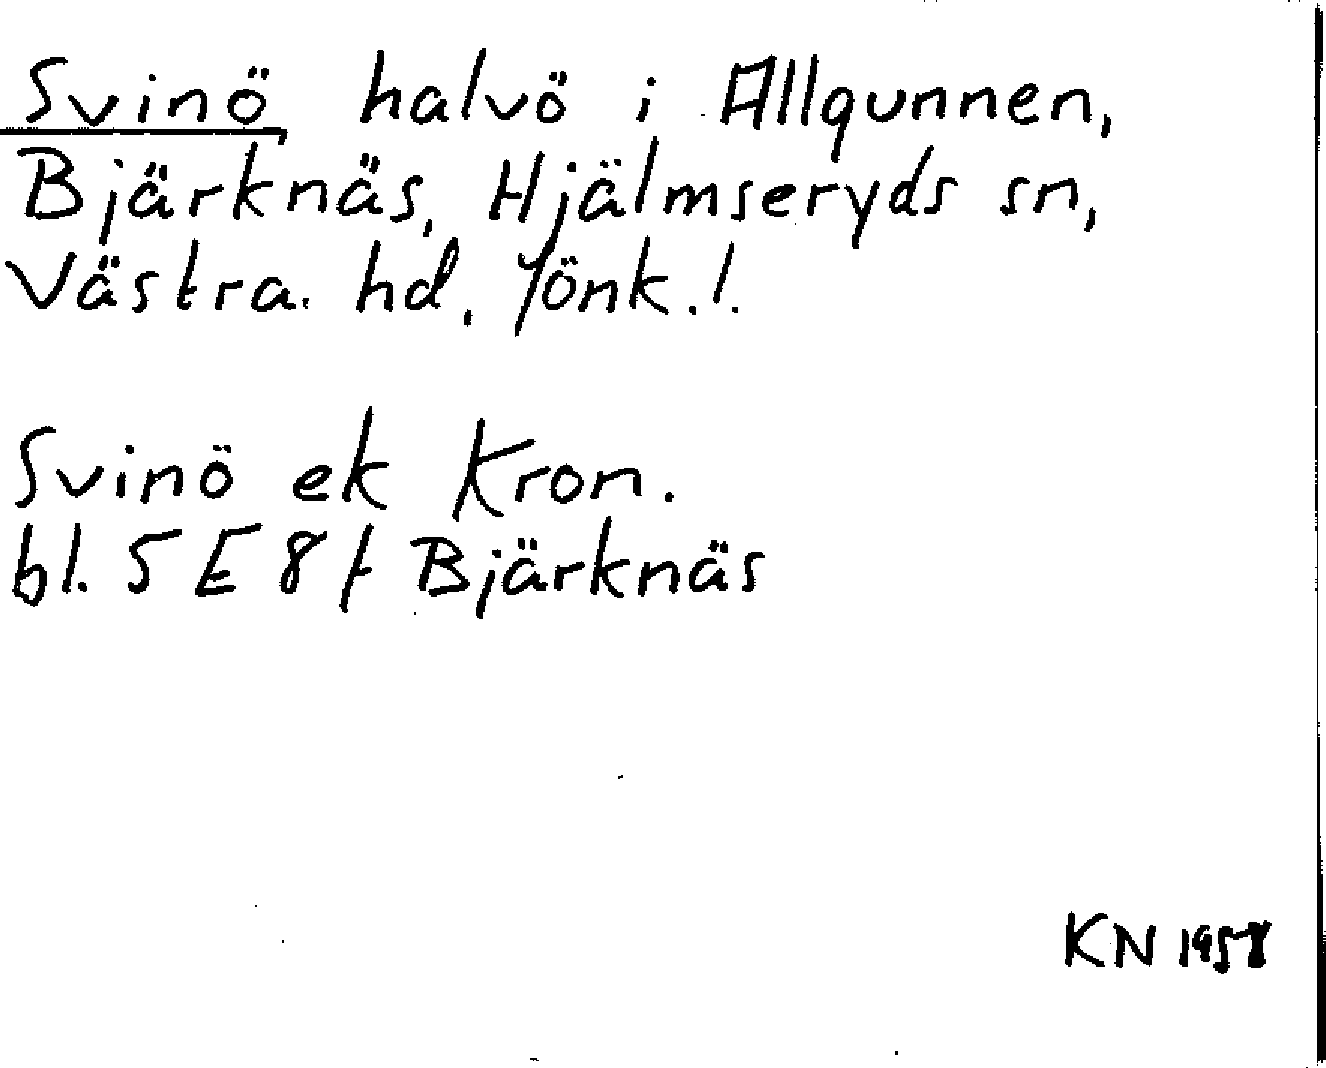 Svinö, halvö i Allgunnen,
Bjärknäs, Hjälmseryds sn,
Västra hd, Jönk. l.
Svinö ek Kron.
bl. 5 E 8 f Bjärknäs
KN 1958